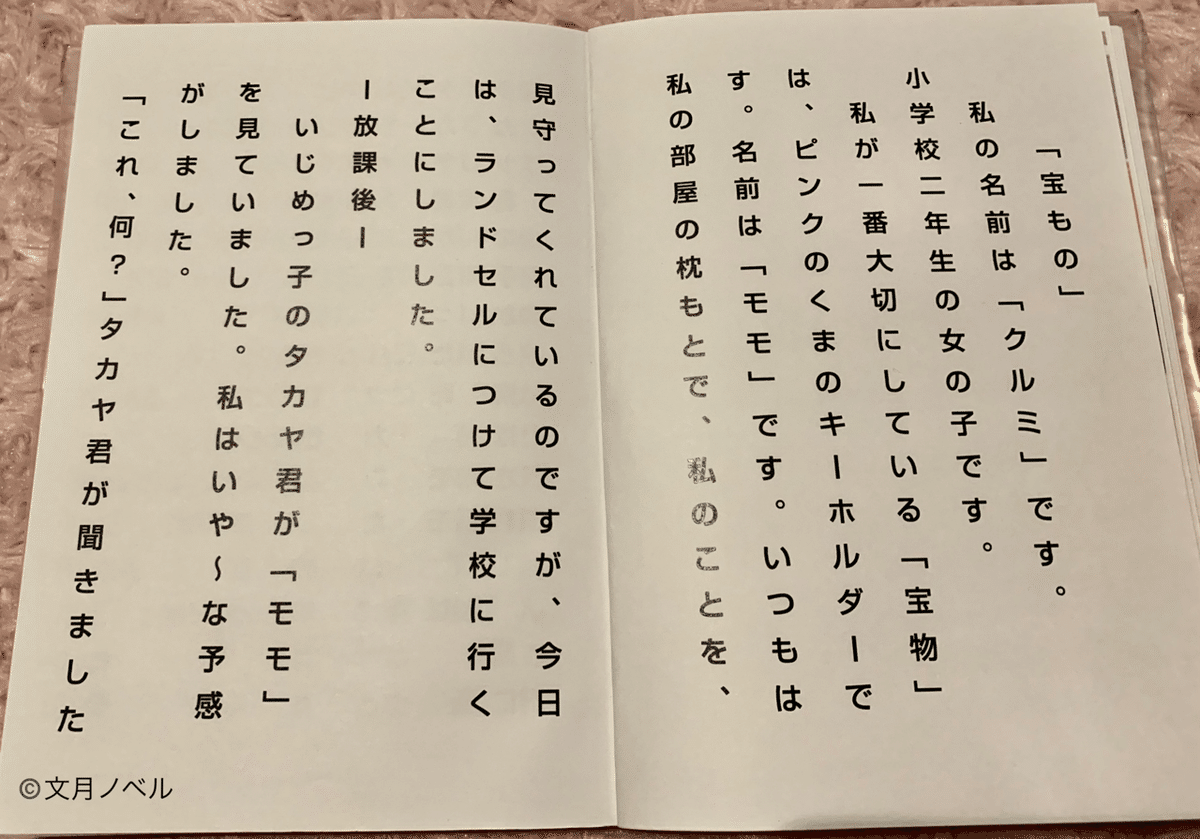 「宝もの」
私の名前は「クルミ」です。
小学校二年生の女の子です。
私が一番大切にしている「宝物」
は、ピンクのくまのキーホルダーで
す。名前は「モモ」です。いつもは
私の部屋の枕もとで、私のことを、
見守ってくれているのですが、今日
は、ランドセルにつけて学校に行く
ことにしました。
ー放課後ー
いじめっ子のタカヤ君が「モモ」
を見ていました。私はいや〜な予感
がしました。
「これ、何?」タカヤ君が聞きました
©文月ノベル